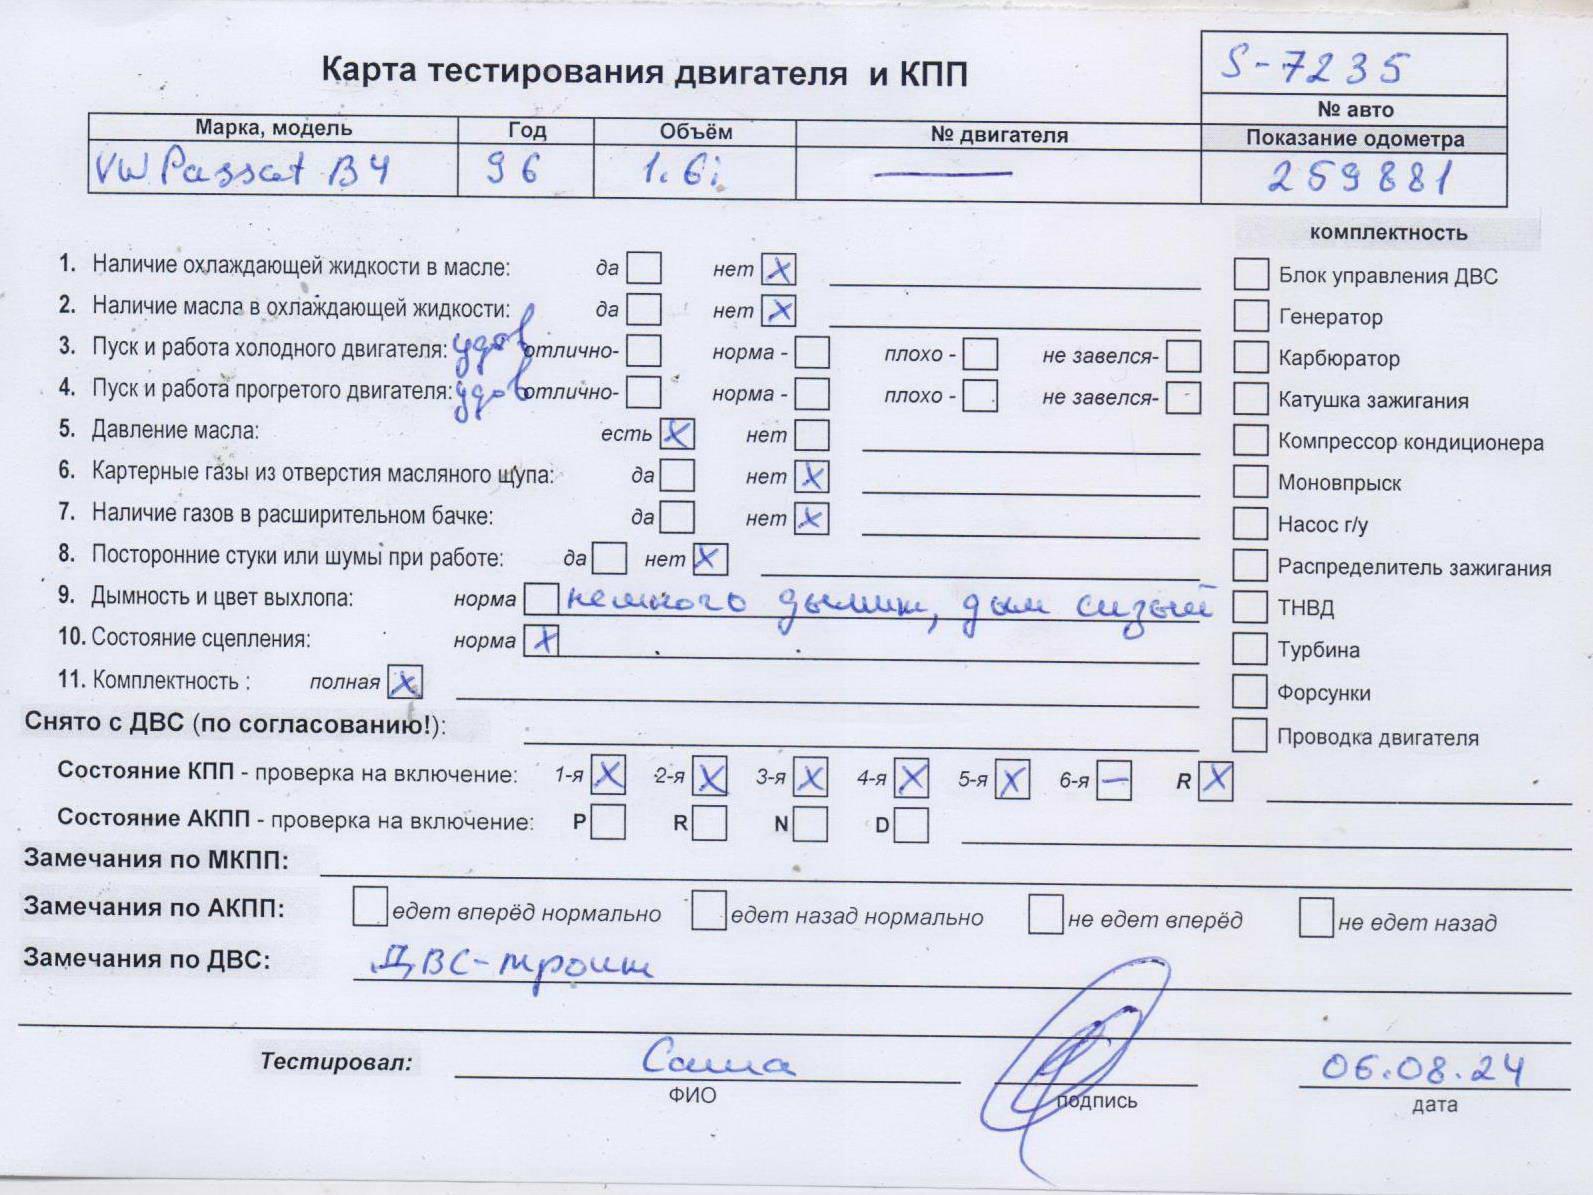 Карта тестирования двигателя и КПП
S-7235
№ авто
Марка, модель Год Объём № двигателя Показание одометра
VW Passat B4 96 1.6i — 259881
комплектность
1. Наличие охлаждающей жидкости в масле: да нет X
Блок управления ДВС
2. Наличие масла в охлаждающей жидкости: да нет X
Генератор
3. Пуск и работа холодного двигателя: удов отлично- норма - плохо - не завелся-
Карбюратор
4. Пуск и работа прогретого двигателя: удов отлично- норма - плохо - не завелся-
Катушка зажигания
5. Давление масла: есть X нет
Компрессор кондиционера
6. Картерные газы из отверстия масляного щупа: да нет X
Моновпрыск
7. Наличие газов в расширительном бачке: да нет X
Насос г/у
8. Посторонние стуки или шумы при работе: да нет X
Распределитель зажигания
9. Дымность и цвет выхлопа: норма немного дымит, дым сизый
ТНВД
10. Состояние сцепления: норма X
Турбина
11. Комплектность : полная X
Форсунки
Снято с ДВС (по согласованию!):
Проводка двигателя
Состояние КПП - проверка на включение: 1-я X 2-я X 3-я X 4-я X 5-я X 6-я — R X
Состояние АКПП - проверка на включение: P R N D
Замечания по МКПП:
Замечания по АКПП: едет вперёд нормально едет назад нормально не едет вперёд не едет назад
Замечания по ДВС: ДВС-троит
Тестировал: Саша 06.08.24
ФИО подпись дата